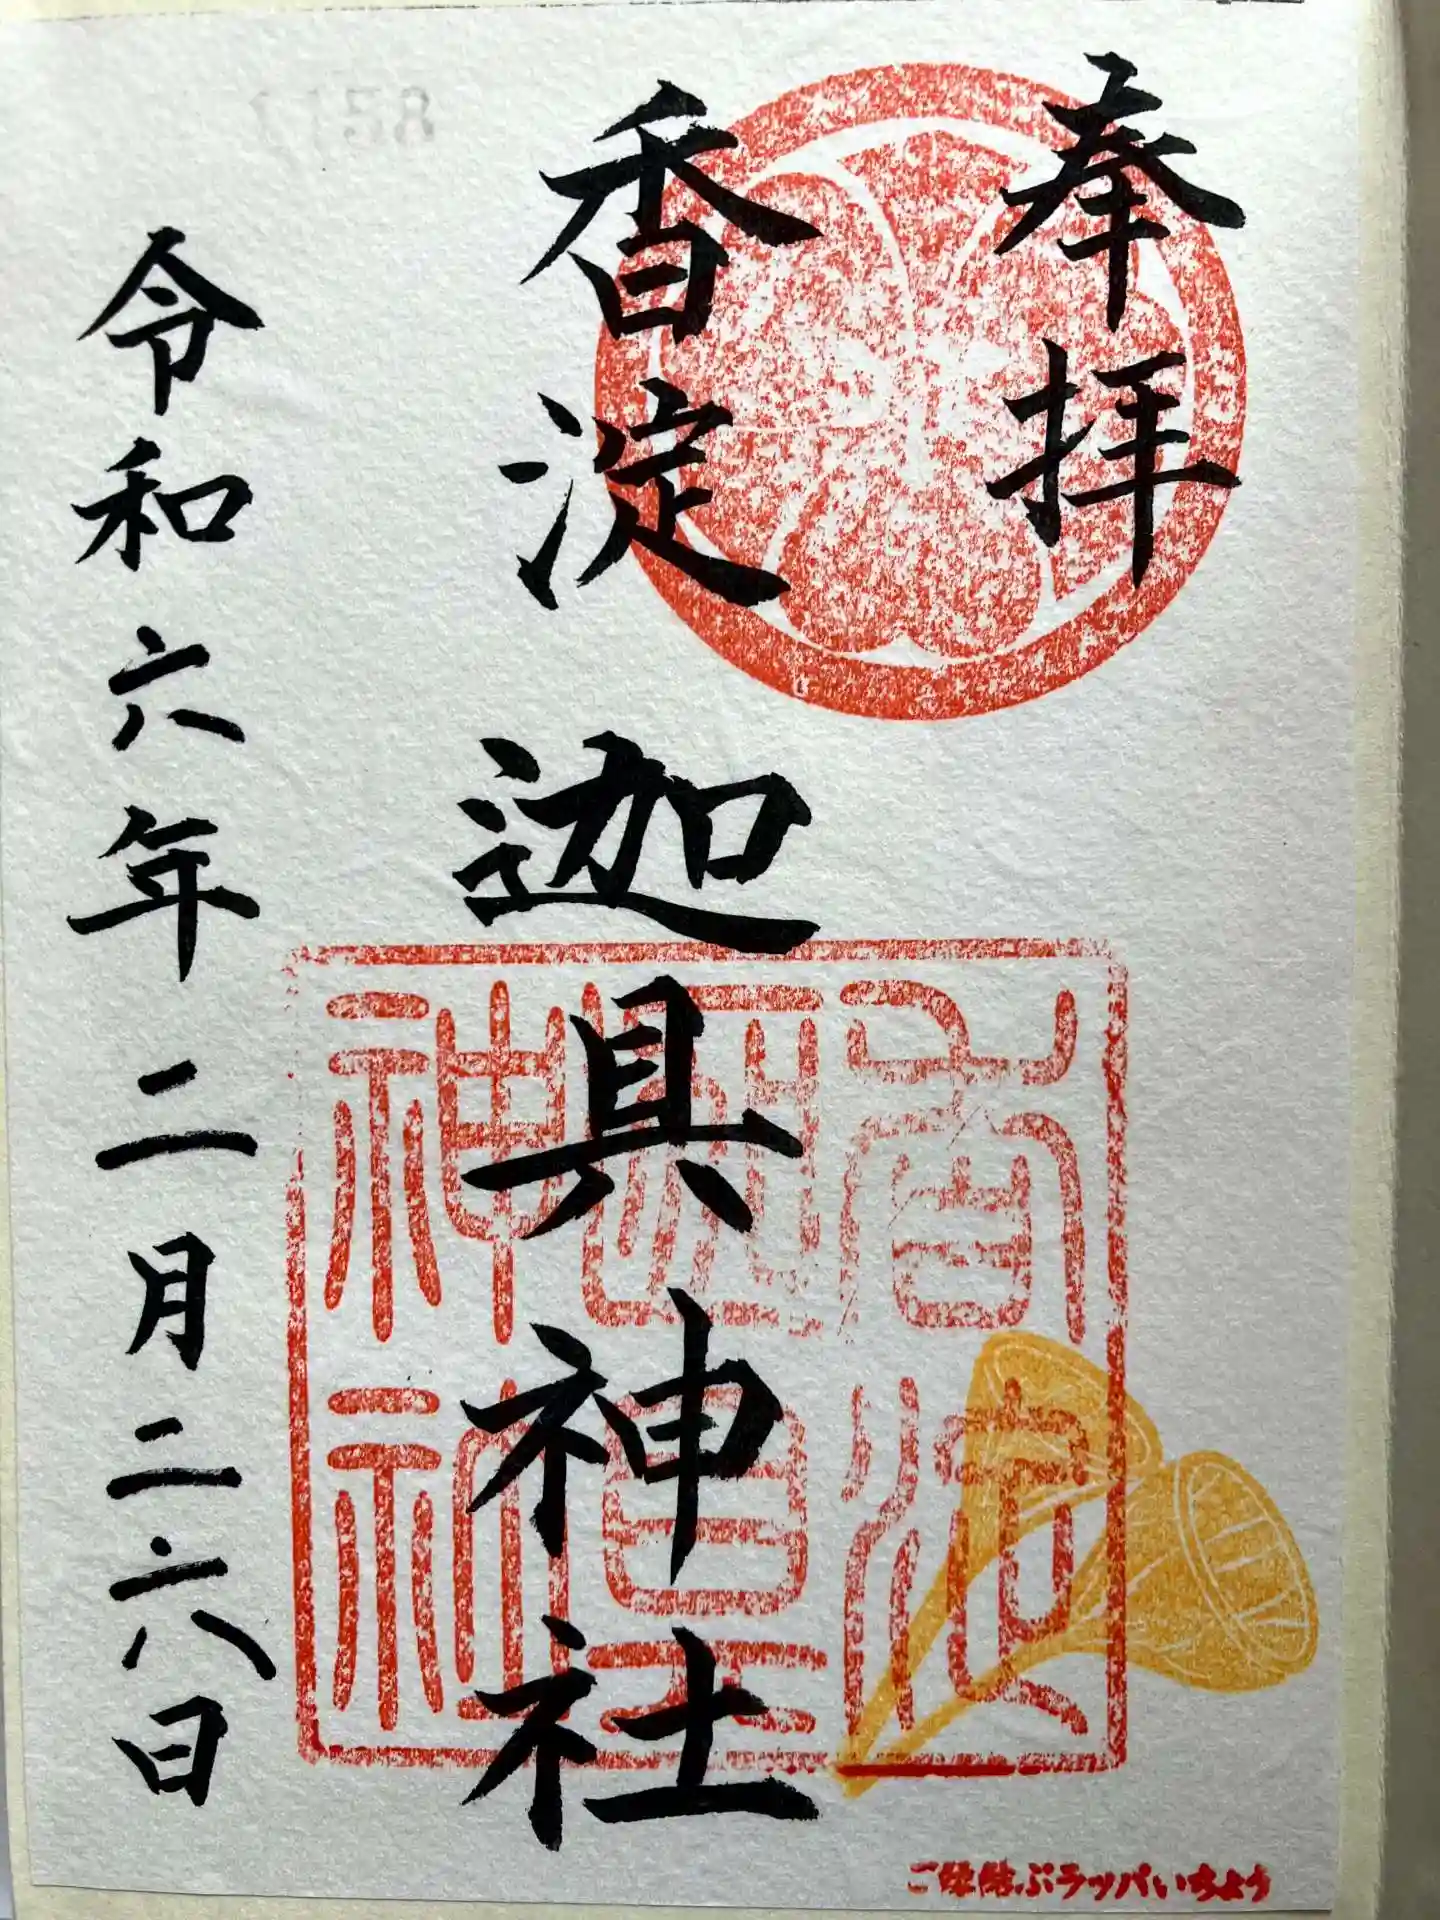 奉拝
香淀
迦具神社
令和六年二月二六日
香淀
迦具土
神社
ご縁結ぶラッパいちょう